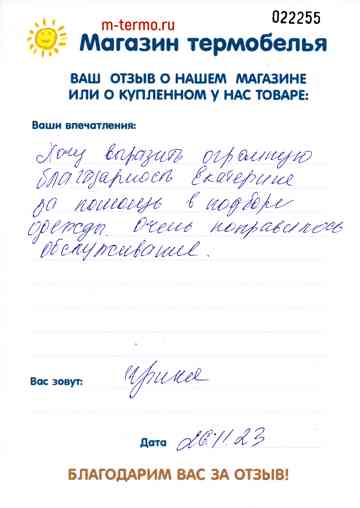 m-termo.ru
022255
Магазин термобелья
ВАШ ОТЗЫВ О НАШЕМ МАГАЗИНЕ
ИЛИ О КУПЛЕННОМ У НАС ТОВАРЕ:
Ваши впечатления:
Хочу выразить огромную
благодарность Екатерине
за помощь в подборе
одежды. Очень понравилось
обслуживание.
Вас зовут: Ирина
Дата 26.11.23
БЛАГОДАРИМ ВАС ЗА ОТЗЫВ!